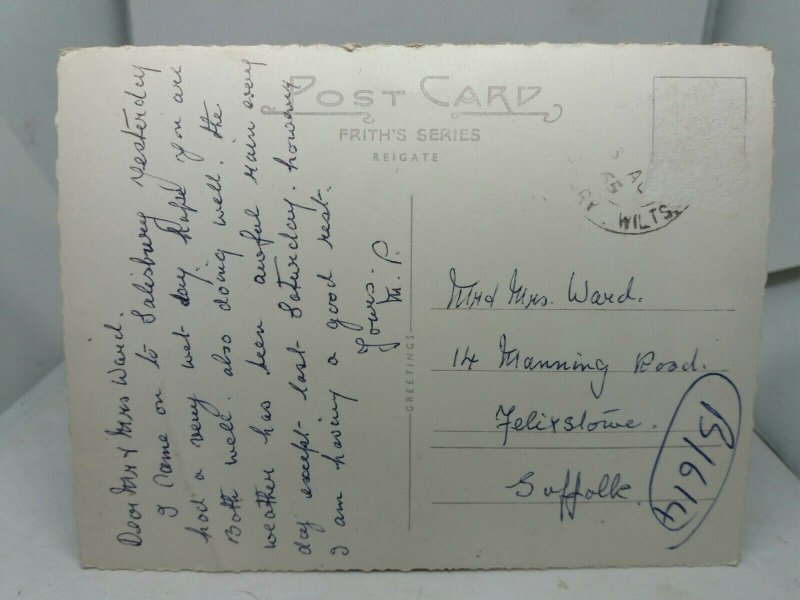 POST CARD
FRITH'S SERIES
REIGATE
Dear Mr & Mrs Ward.
I came on to Salisbury yesterday
had a very wet day, hope you are
Both well. also doing well. the
weather has been awful rain every
day except last Saturday. however
I am having a good rest.
Yours.
M. P.
GREETINGS
WILTS
Mr & Mrs. Ward.
14 Manning Road.
Felixstowe.
Suffolk.
B1614